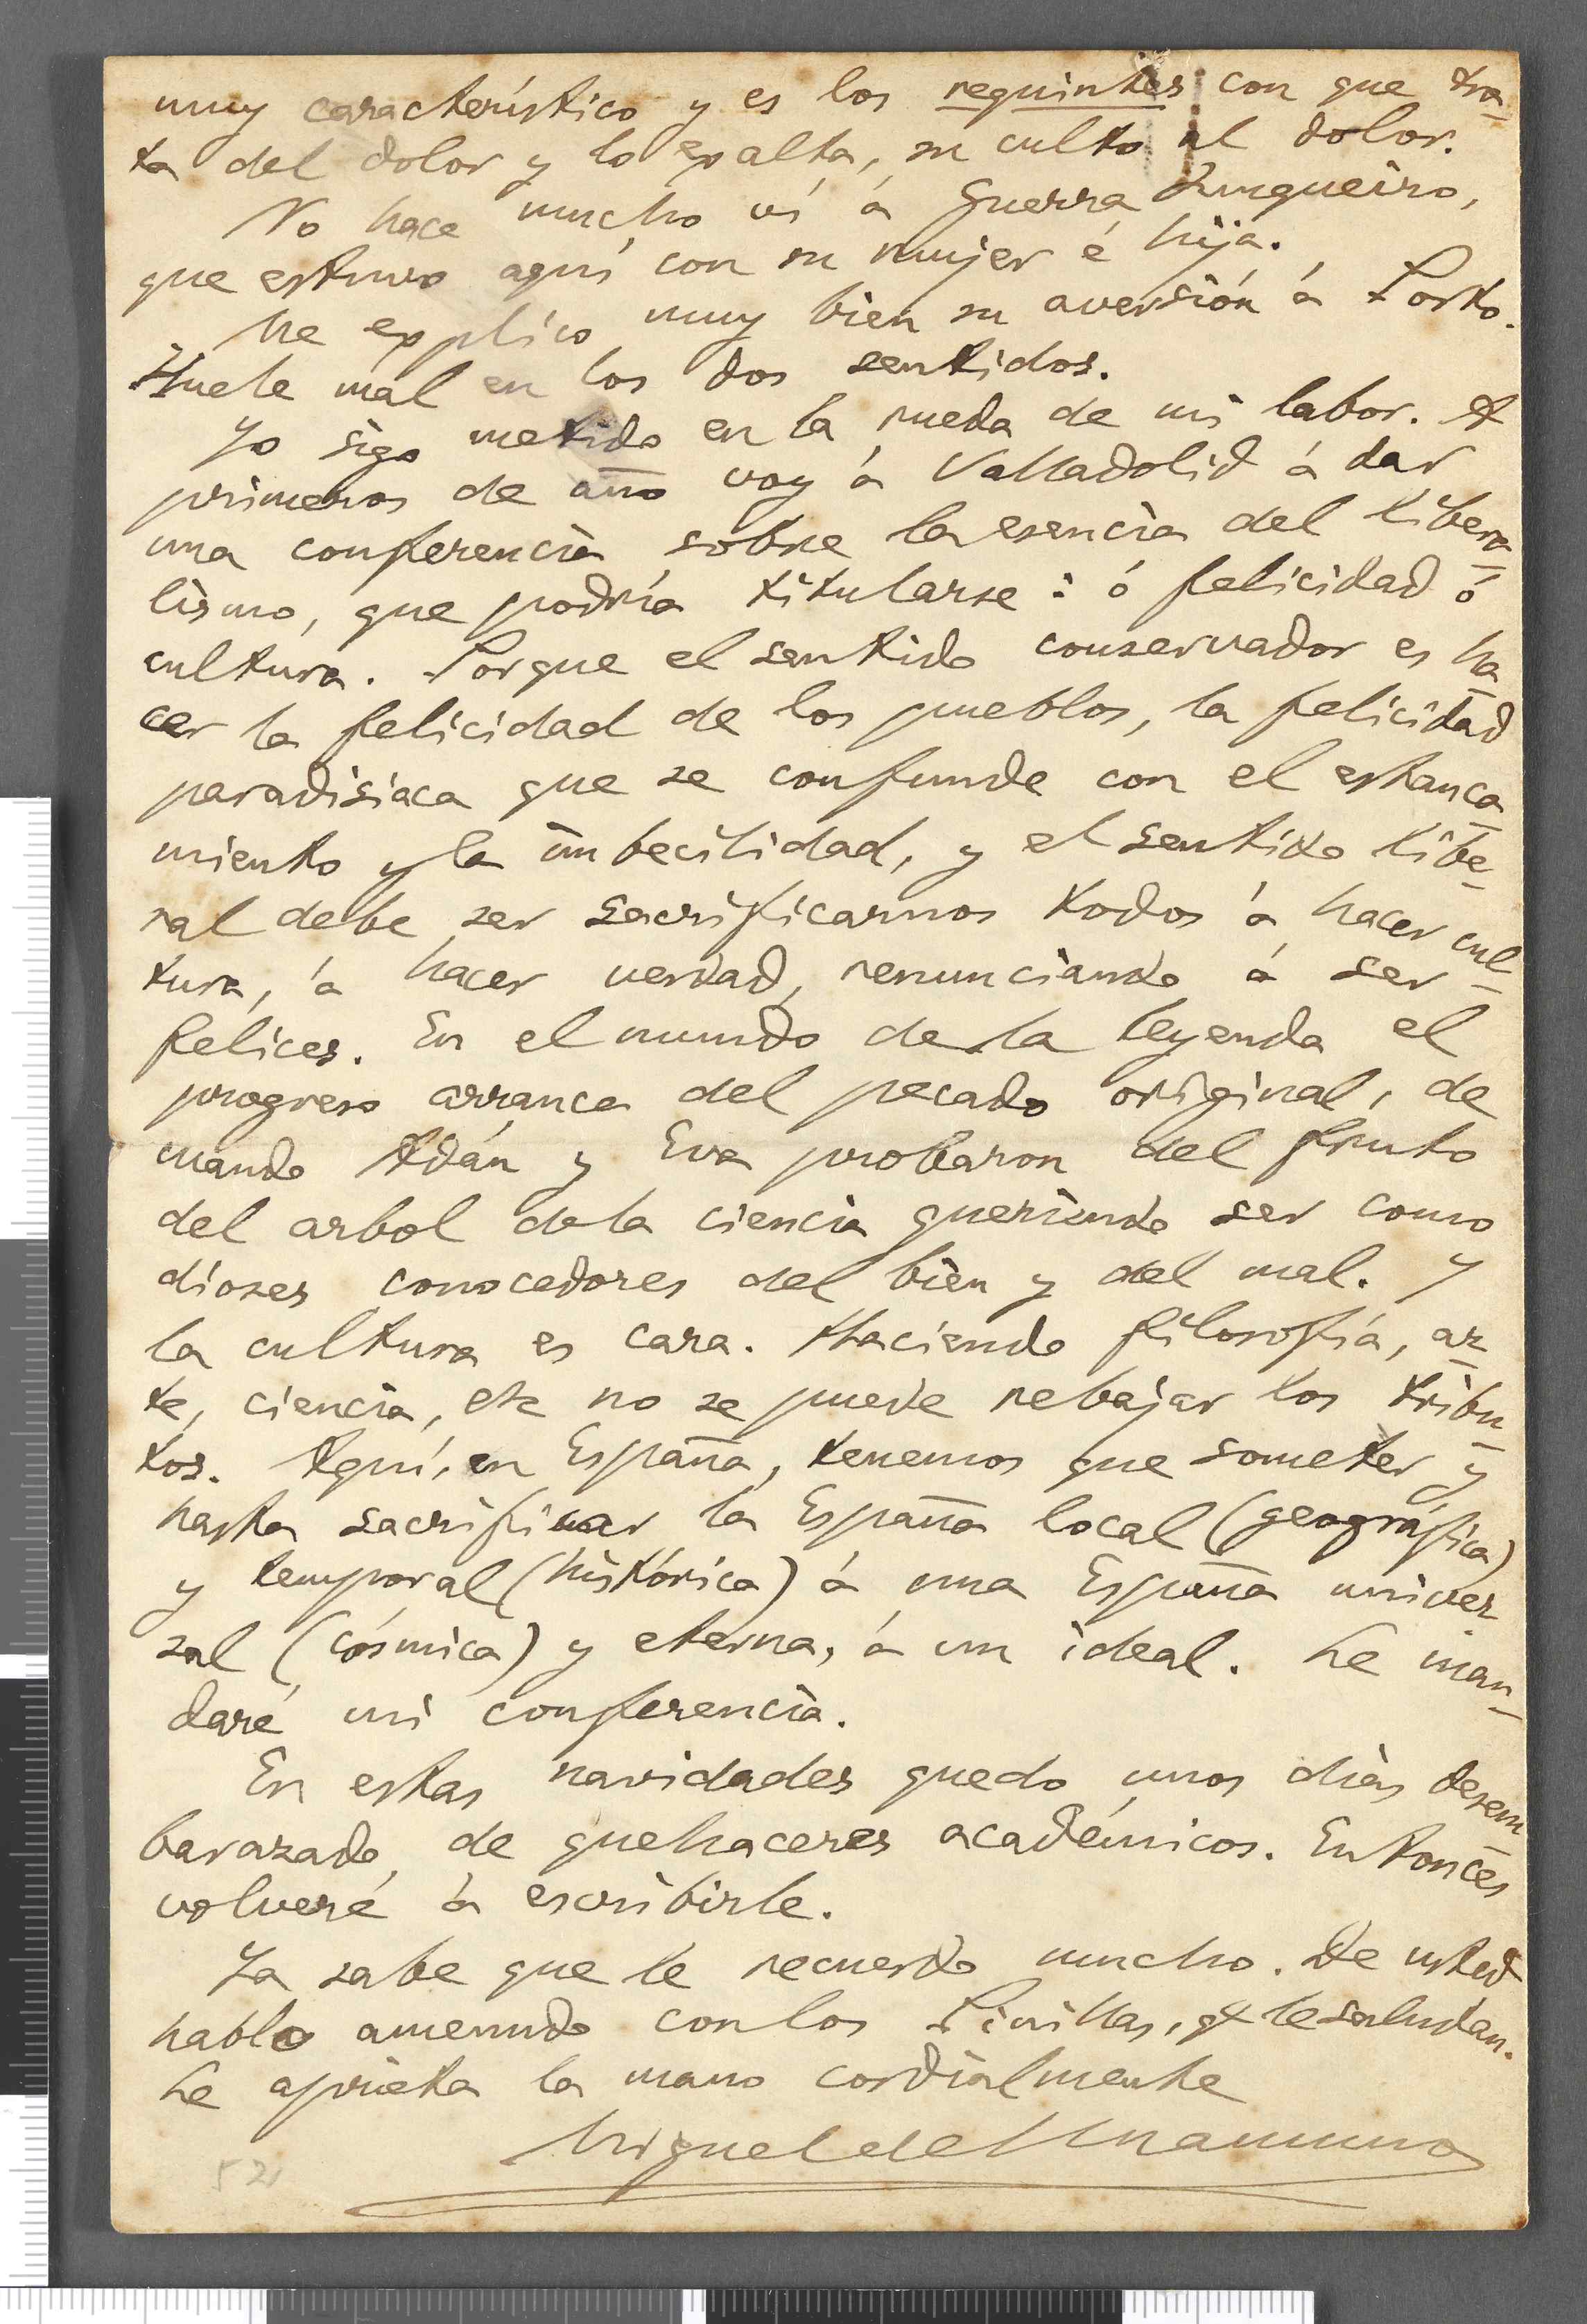 muy característico y es los requintes con que tra-
ta del dolor y lo exalta, su culto al dolor.
No hace mucho ví á Guerra Junqueiro,
que estuvo aquí con su mujer é hija.
Me explico muy bien su aversión á Porto.
Huele mal en los dos sentidos.
Yo sigo metido en la rueda de mi labor. A
primeros de año voy á Valladolid á dar
una conferencia sobre la esencia del libera-
lismo, que podría titularse: ó felicidad ó
cultura. Porque el sentido conservador es ha-
cer la felicidad de los pueblos, la felicidad
paradisiaca que se confunde con el estanca-
miento y la imbecilidad, y el sentido libe-
ral debe ser sacrificarnos todos á hacer cul-
tura, á hacer verdad, renunciando á ser
felices. En el mundo de la leyenda el
progreso arranca del pecado original, de
cuando Adán y Eva probaron del fruto
del arbol de la ciencia queriendo ser como
dioses conocedores del bien y del mal. Y
la cultura es cara. Haciendo filosofía, ar-
te, ciencia, etc no se puede rebajar los tribu-
tos. Aquí, en España, tenemos que someter y
hasta sacrificar la España local (geográfica)
y temporal (histórica) á una España univer-
sal (cósmica) y eterna, á un ideal. Le man-
daré mi conferencia.
En estas navidades quedo unos dias desem-
barazado de quehaceres académicos. Entonces
volveré á escribirle.
Ya sabe que le recuerdo mucho. De usted
hablo amenudo con los Pinillas, q. le saludan.
Le aprieta la mano cordialmente
Miguel de Unamuno
521